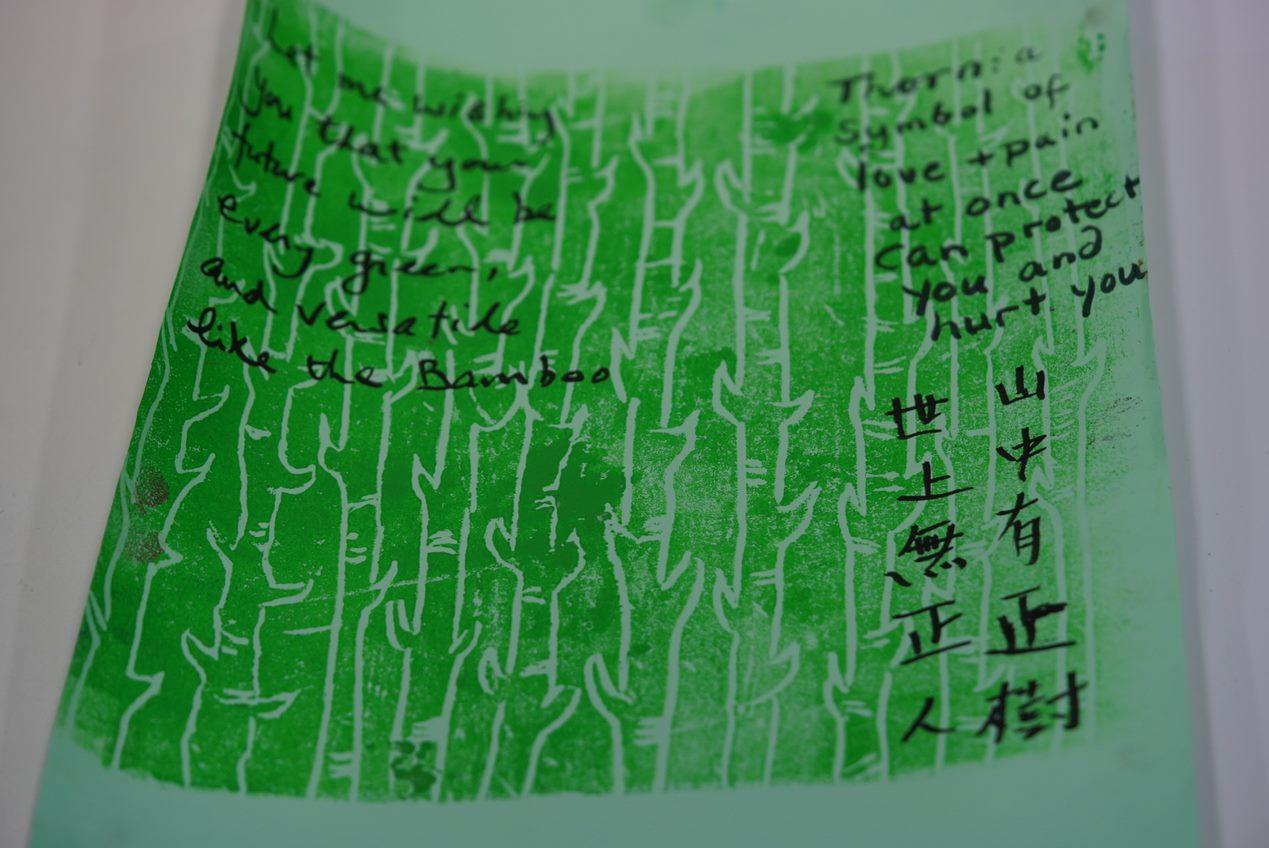 Let me wishing
you that your
future will be
every green,
and versatile
like the Bamboo
Thorn: a
symbol of
love + pain
at once
Can protect
you and
hurt you
山中有正樹
世上無正人